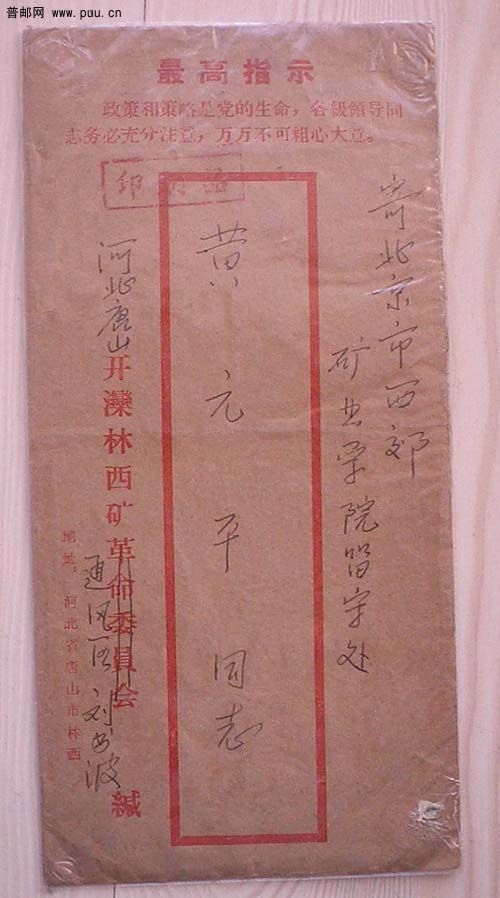 普邮网 www.puu.cn
最高指示
政策和策略是党的生命，各級領导同
志务必充分注意，万万不可粗心大意。
印刷品
寄北京市西郊
矿业学院留守处
黄元平同志
河北唐山开灤林西矿革命委員会 緘
通风区刘
地址：河北省唐山市林西